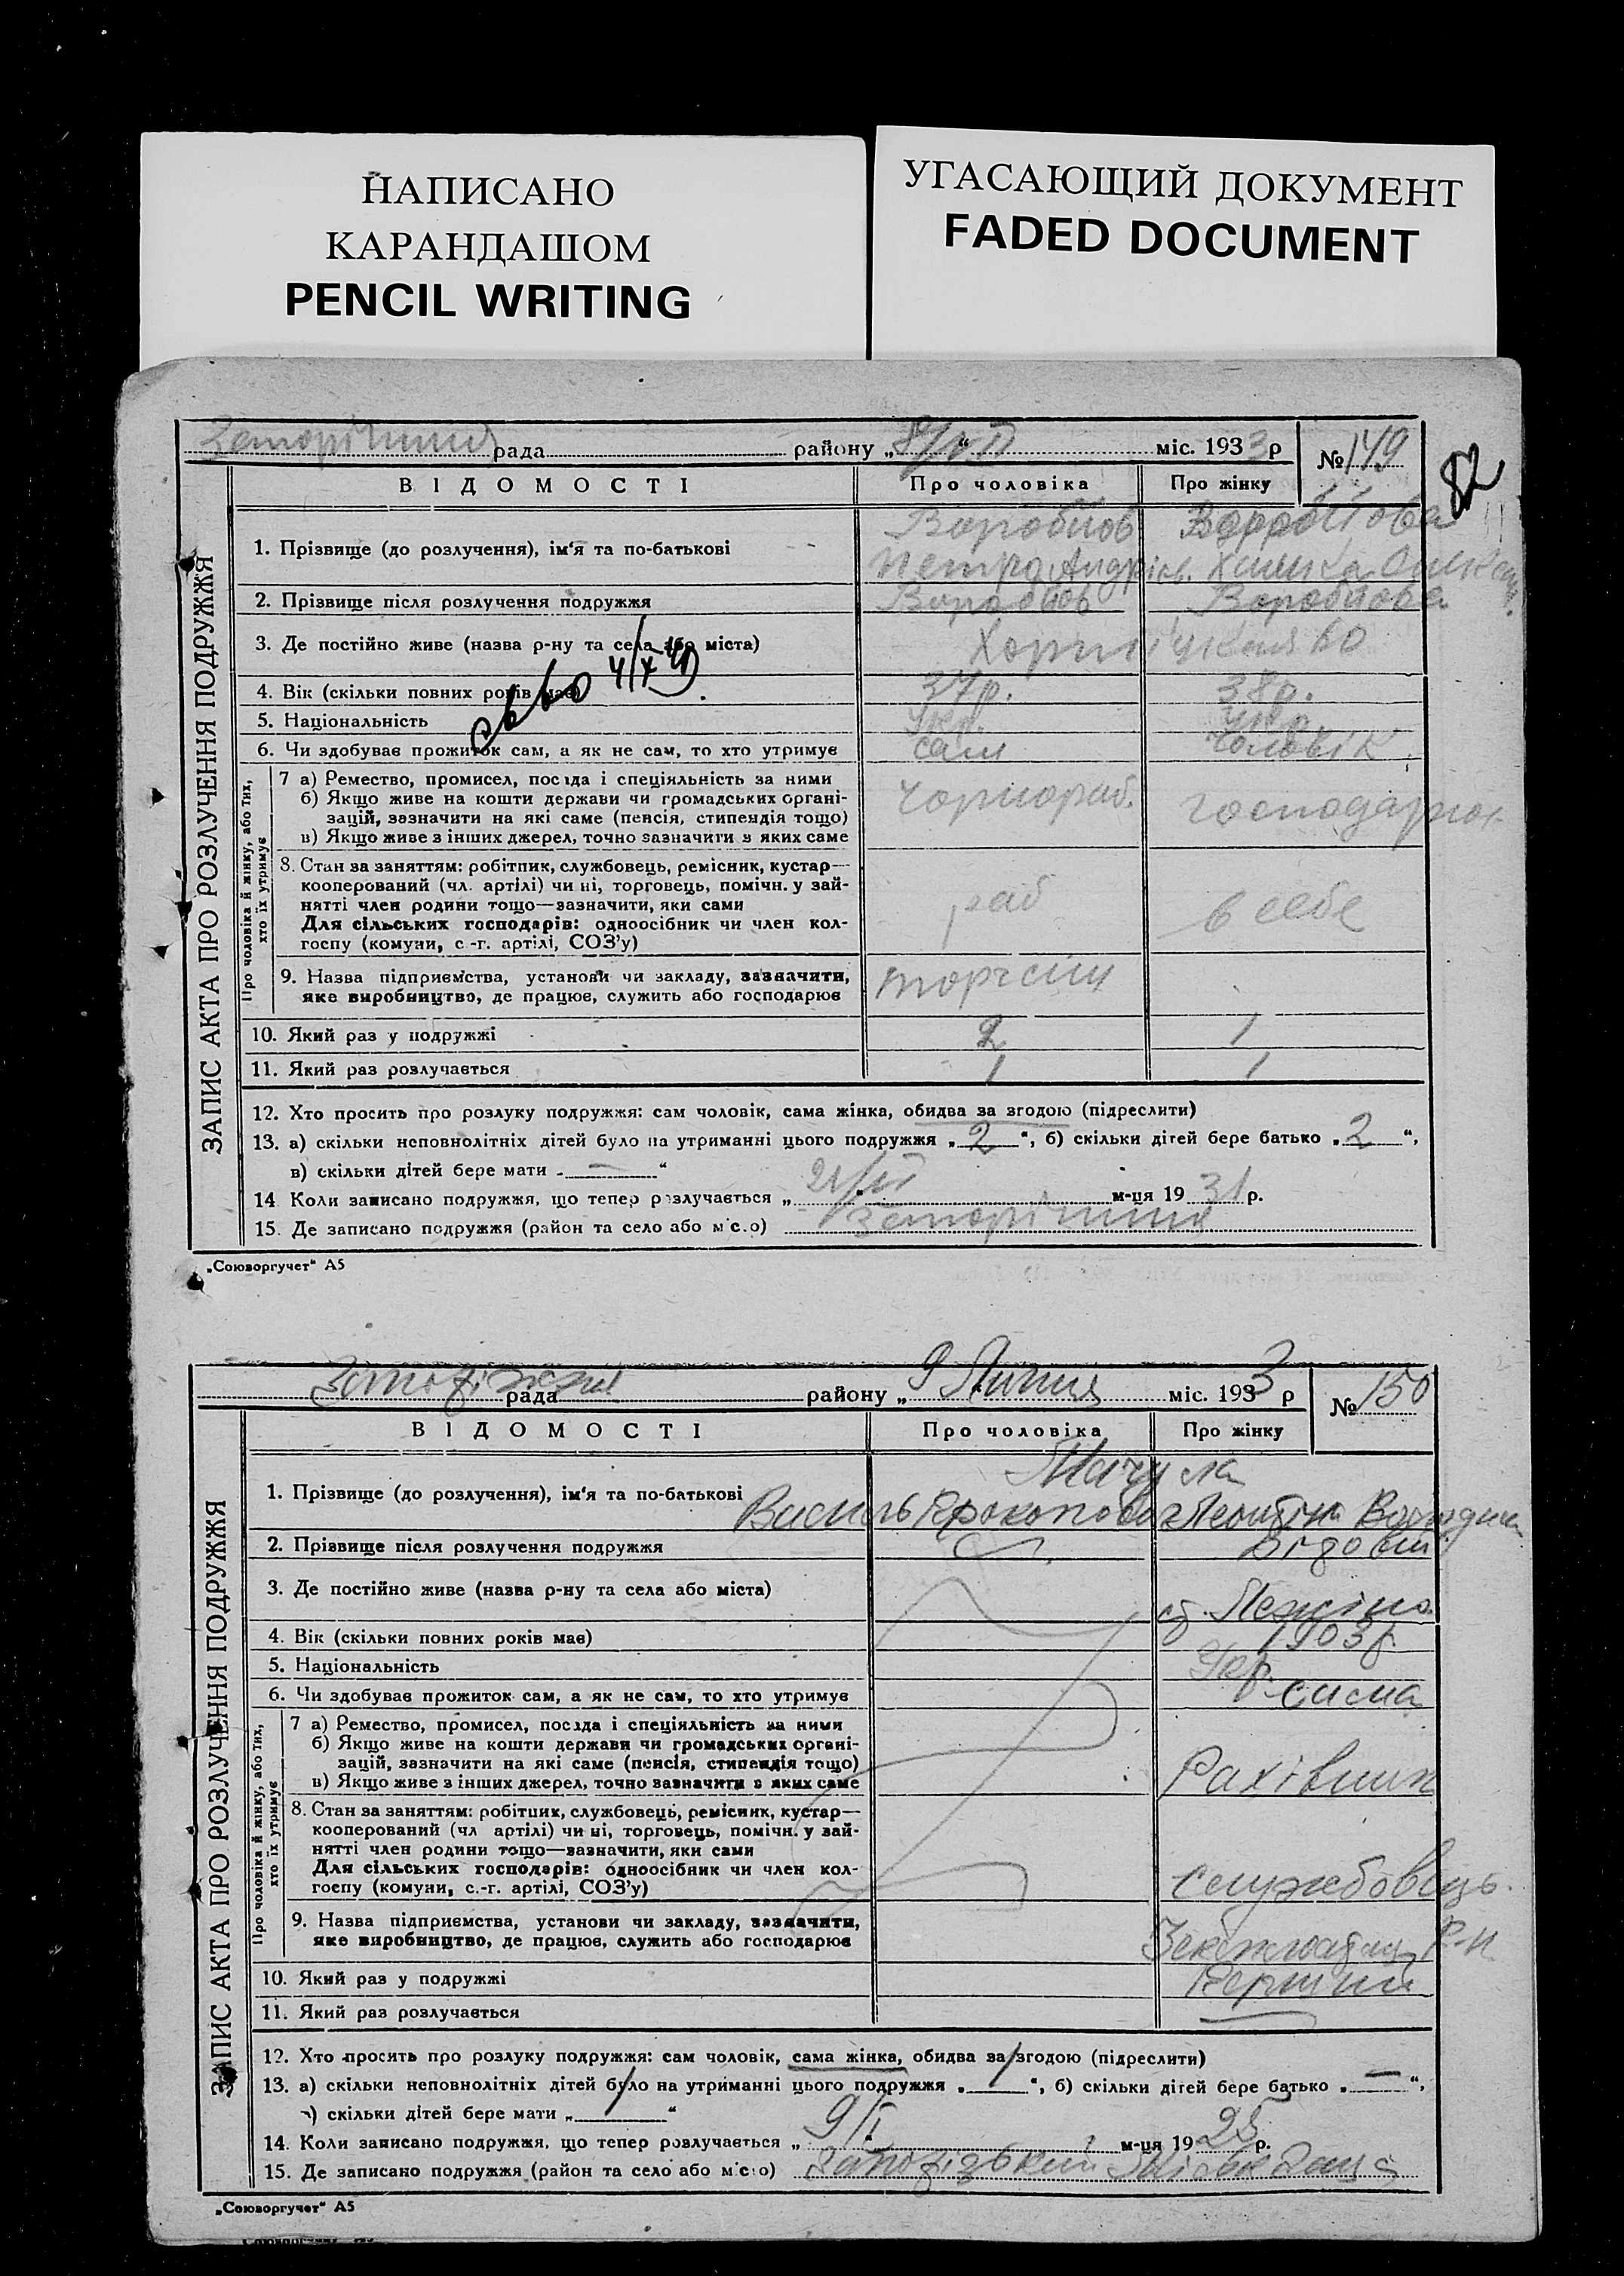 НАПИСАНО
КАРАНДАШОМ
PENCIL WRITING
УГАСАЮЩИЙ ДОКУМЕНТ
FADED DOCUMENT
рада району „ “ міс. 1933 р № 149
82
ЗАПИС АКТА ПРО РОЗЛУЧЕННЯ ПОДРУЖЖЯ
ВІДОМОСТІ Про чоловіка Про жінку
1. Прізвище (до розлучення), ім'я та по-батькові
Воробйов
Петро Андрієв.
2. Прізвище після розлучення подружжя Воробйов Воробйова
3. Де постійно живе (назва р-ну та села або міста)
4. Вік (скільки повних років має) 37р. 38р.
5. Національність Укр. Укр.
6. Чи здобуває прожиток сам, а як не сам, то хто утримує сам чоловік
Про чоловіка й жінку, або тих, хто їх утримує
7 а) Ремество, промисел, посада і спеціяльність за ними
б) Якщо живе на кошти держави чи громадських органі-
зацій, зазначити на які саме (пенсія, стипендія тощо)
в) Якщо живе з інших джерел, точно зазначити з яких саме
чорнораб.
8. Стан за заняттям: робітник, службовець, ремісник, кустар—
кооперований (чл. артілі) чи ні, торговець, помічн. у зай-
нятті член родини тощо—зазначити, яки сами
Для сільських господарів: одноосібник чи член кол-
госпу (комуни, с.-г. артілі, СОЗ'у)
раб в себе
9. Назва підприємства, установи чи закладу, зазначити,
яке виробництво, де працює, служить або господарює
торгсин
10. Який раз у подружжі 2 1
11. Який раз розлучається 1 1
12. Хто просить про розлуку подружжя: сам чоловік, сама жінка, обидва за згодою (підреслити)
13. а) скільки неповнолітніх дітей було на утриманні цього подружжя „ 2 “, б) скільки дітей бере батько „ 2 “,
в) скільки дітей бере мати „ — “
14. Коли записано подружжя, що тепер розлучається „ м-ця 1931 р.
15. Де записано подружжя (район та село або місто)
„Союзоргучет“ А5
рада району „ 9 Липня міс. 1933 р № 150
ЗАПИС АКТА ПРО РОЗЛУЧЕННЯ ПОДРУЖЖЯ
ВІДОМОСТІ Про чоловіка Про жінку
1. Прізвище (до розлучення), ім'я та по-батькові
Мачула
Василь Прокопович
2. Прізвище після розлучення подружжя
3. Де постійно живе (назва р-ну та села або міста)
4. Вік (скільки повних років має) 1903р.
5. Національність Укр.
6. Чи здобуває прожиток сам, а як не сам, то хто утримує сама
Про чоловіка й жінку, або тих, хто їх утримує
7 а) Ремество, промисел, посада і спеціяльність за ними
б) Якщо живе на кошти держави чи громадських органі-
зацій, зазначити на які саме (пенсія, стипендія тощо)
в) Якщо живе з інших джерел, точно зазначити з яких саме
Рахівник
8. Стан за заняттям: робітник, службовець, ремісник, кустар—
кооперований (чл артілі) чи ні, торговець, помічн. у зай-
нятті член родини тощо—зазначити, яки сами
Для сільських господарів: одноосібник чи член кол-
госпу (комуни, с.-г. артілі, СОЗ'у)
службовець.
9. Назва підприємства, установи чи закладу, зазначити,
яке виробництво, де працює, служить або господарює
10. Який раз у подружжі Перший
11. Який раз розлучається
12. Хто просить про розлуку подружжя: сам чоловік, сама жінка, обидва за згодою (підреслити)
13. а) скільки неповнолітніх дітей було на утриманні цього подружжя „ “, б) скільки дітей бере батько „ — “,
в) скільки дітей бере мати „ “
14. Коли записано подружжя, що тепер розлучається „ 9/I м-ця 1925 р.
15. Де записано подружжя (район та село або місто)
„Союзоргучет“ А5